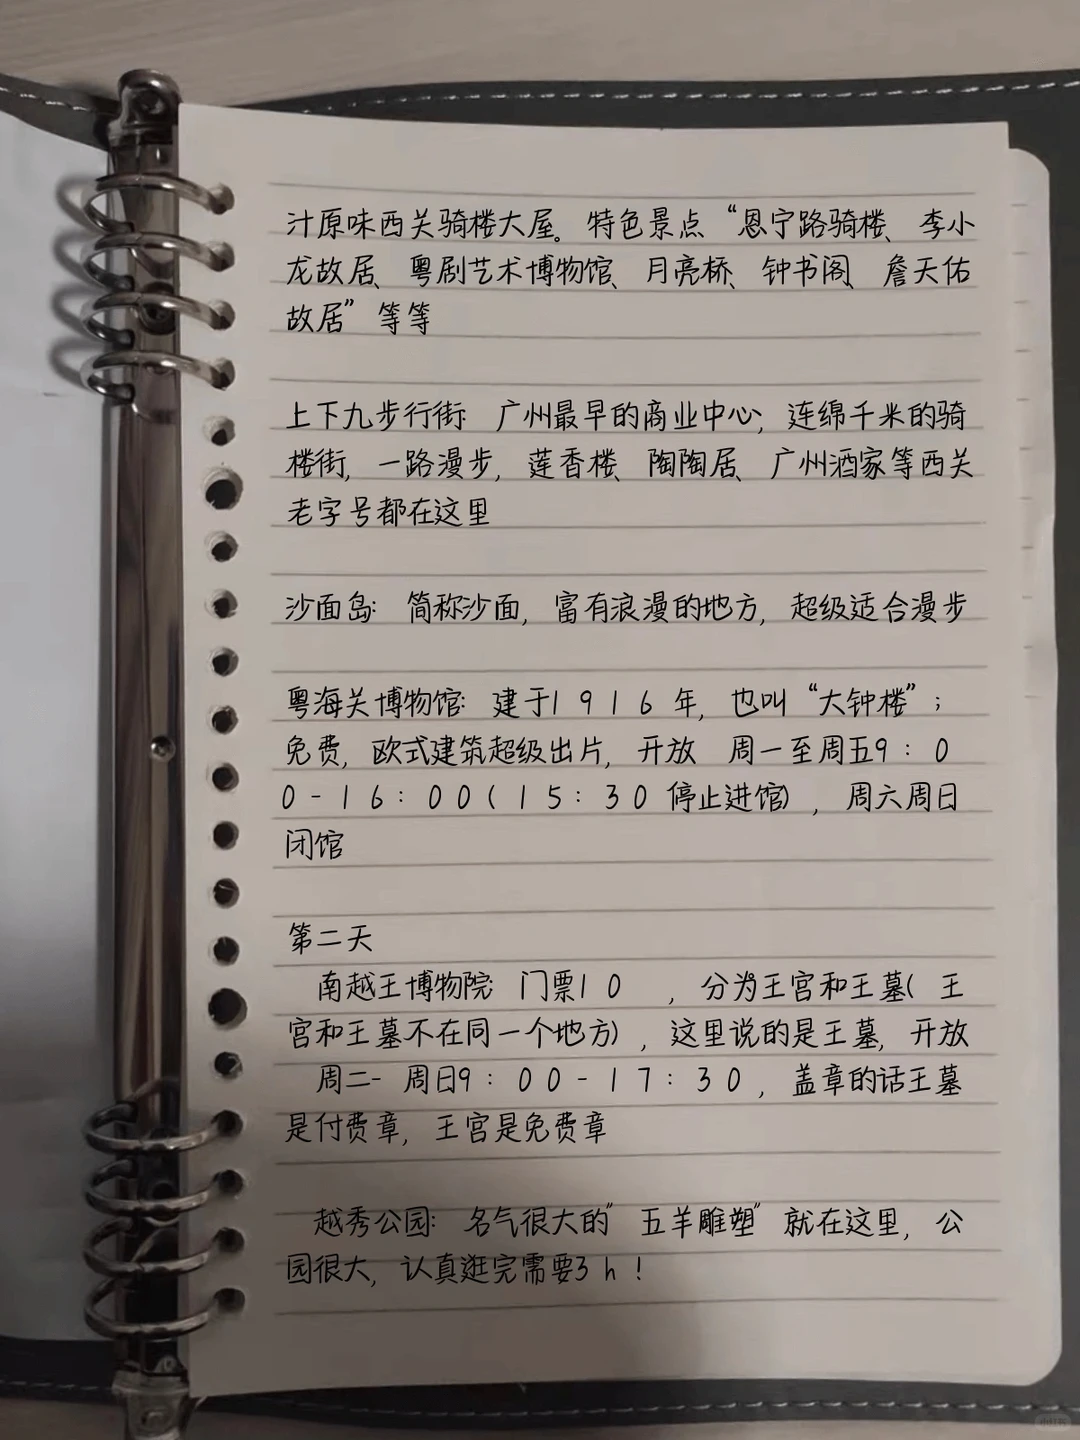 汁原味西关骑楼大屋。特色景点“恩宁路骑楼、李小
龙故居、粤剧艺术博物馆、月亮桥、钟书阁、詹天佑
故居”等等
上下九步行街：广州最早的商业中心，连绵千米的骑
楼街，一路漫步，莲香楼、陶陶居、广州酒家等西关
老字号都在这里
沙面岛：简称沙面，富有浪漫的地方，超级适合漫步
粤海关博物馆：建于1916年，也叫“大钟楼”；
免费，欧式建筑超级出片，开放 周一至周五9：0
0-16：00(15：30停止进馆)，周六周日
闭馆
第二天
南越王博物院：门票10 ，分为王宫和王墓(王
宫和王墓不在同一个地方)，这里说的是王墓，开放
周二-周日9：00-17：30，盖章的话王墓
是付费章，王宫是免费章
越秀公园：名气很大的"五羊雕塑"就在这里，公
园很大，认真逛完需要3h！